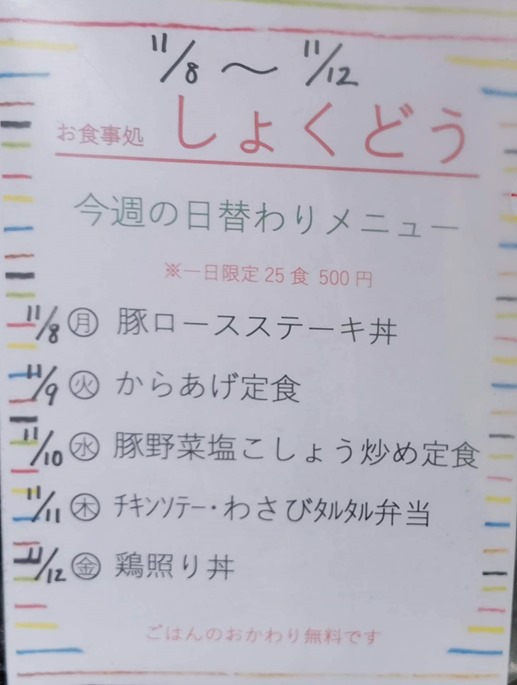 11/8 〜 11/12
お食事処 しょくどう
今週の日替わりメニュー
※一日限定25食 500円
11/8 ㊊ 豚ロースステーキ丼
11/9 ㊋ からあげ定食
11/10 ㊌ 豚野菜塩こしょう炒め定食
11/11 ㊍ ﾁｷﾝｿﾃｰ・わさびﾀﾙﾀﾙ弁当
11/12 ㊎ 鶏照り丼
ごはんのおかわり無料です